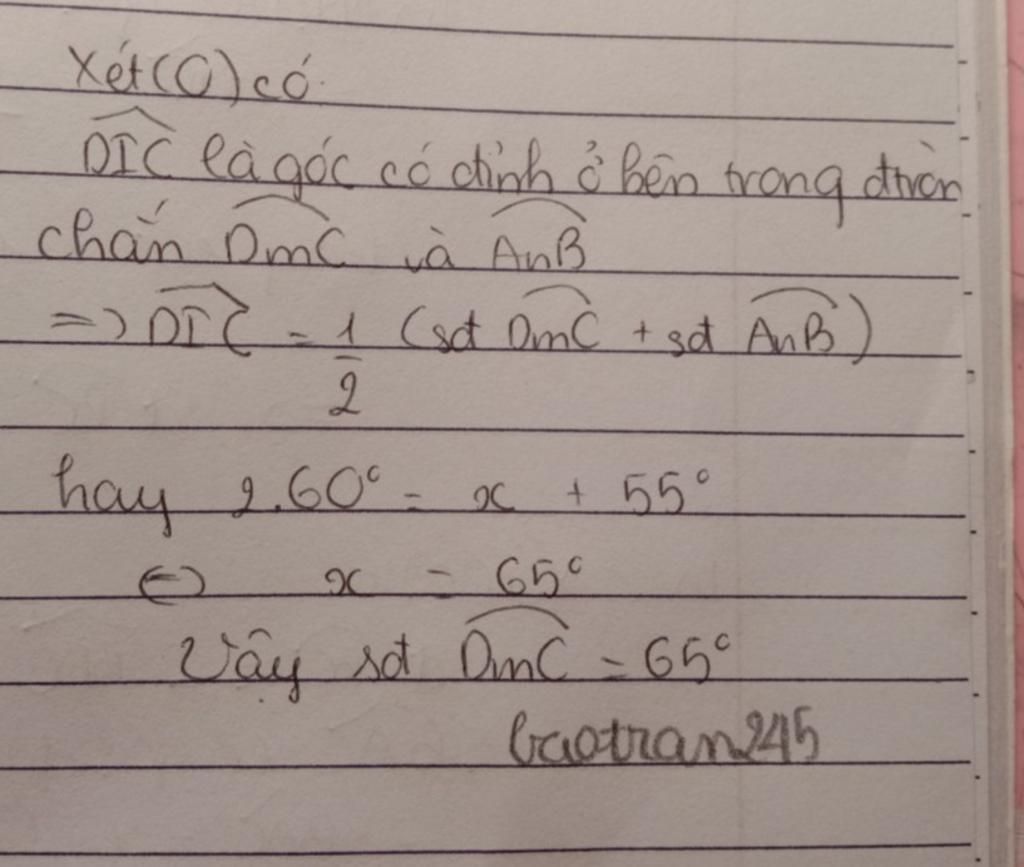 Xét (O) có
DIC là góc có đỉnh ở bên trong đtròn
chắn DmC và AnB
=> DIC = 1/2 (sđ DmC + sđ AnB)
hay 2.60° = x + 55°
<=> x = 65°
Vậy sđ DmC = 65°
baotran245